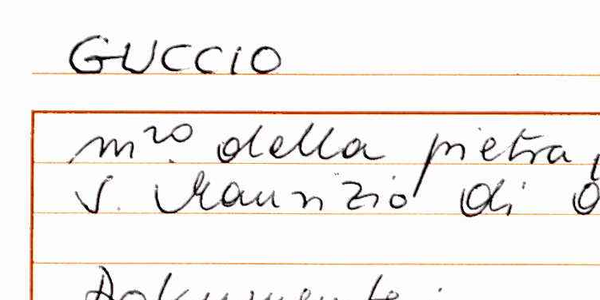 GUCCIO
m.ro della pietra,
S. Maurizio di
Dokumente: